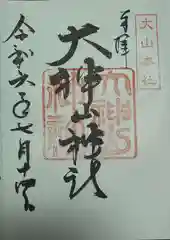 奉拝
大山本社
大神山神社
令和六年七月十四日